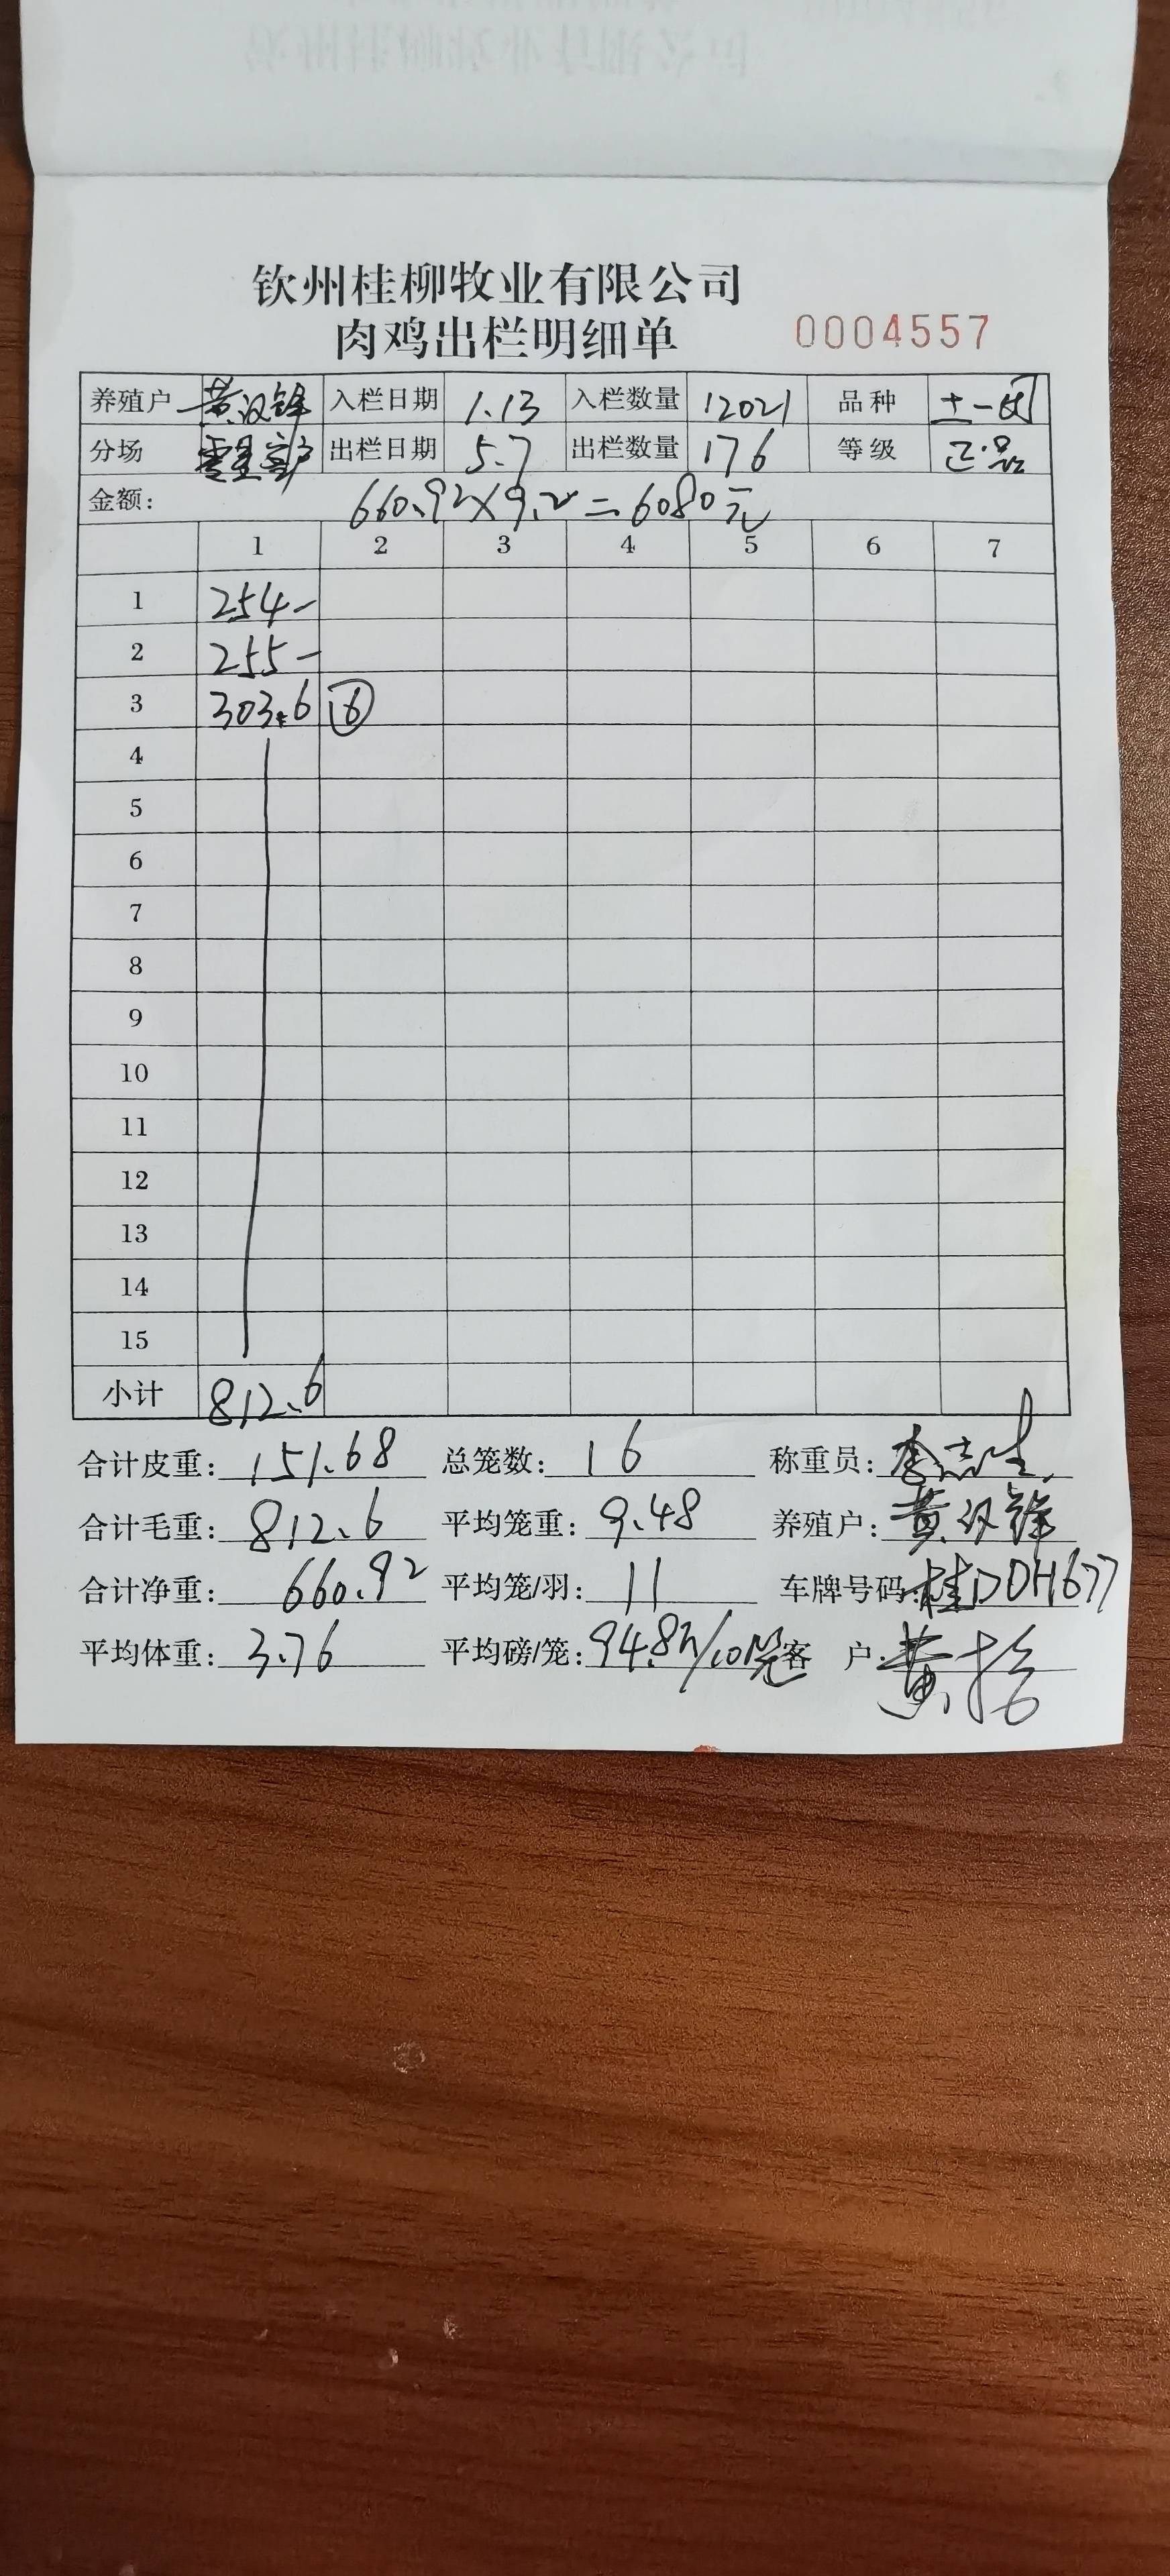 钦州桂柳牧业有限公司
肉鸡出栏明细单 0004557
养殖户 黄汉锋 入栏日期 1.13 入栏数量 12021 品种 土一
分场 零星客户 出栏日期 5.7 出栏数量 176 等级 正品
金额: 660.92×9.2=6080元
1 2 3 4 5 6 7
1 254-
2 255-
3 303.6 ⑥
4
5
6
7
8
9
10
11
12
13
14
15
小计 812.6
合计皮重: 151.68 总笼数: 16 称重员: 李志生
合计毛重: 812.6 平均笼重: 9.48 养殖户: 黄汉锋
合计净重: 660.92 平均笼/羽: 11 车牌号码: 桂DDH677
平均体重: 3.76 平均磅/笼: 94.8斤/10笼 客户: 黄